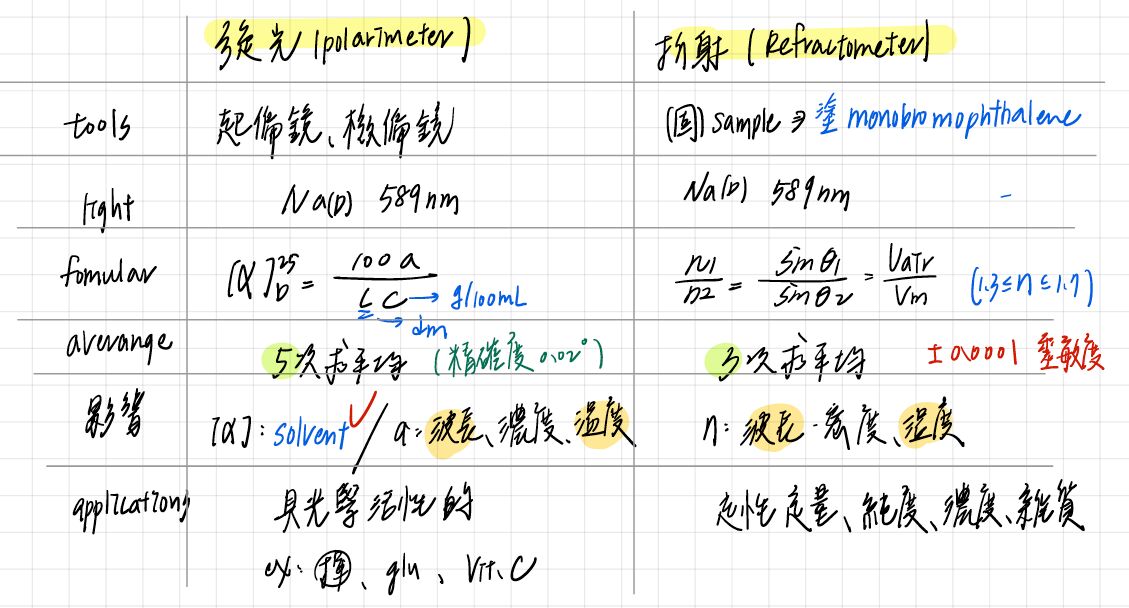 旋光 (polarimeter) 折射 (Refractometer)
tools 起偏鏡、檢偏鏡 (固) sample → 塗 monobromophthalene
light Na(D) 589nm Na(D) 589nm
fomular [α]²⁵_D = 100 a / L C → g/100mL → dm n1/n2 = sinθ1/sinθ2 = Vair/Vm (1.3≤n≤1.7)
averange 5次求平均 (精確度 0.02°) 3次求平均 ±0.0001 靈敏度
影響 [α]: solvent / a: 波長、濃度、溫度 n: 波長、密度、溫度
applications 具光學活性的 定性定量、純度、濃度、雜質
ex: 揮、glu、Vit. C